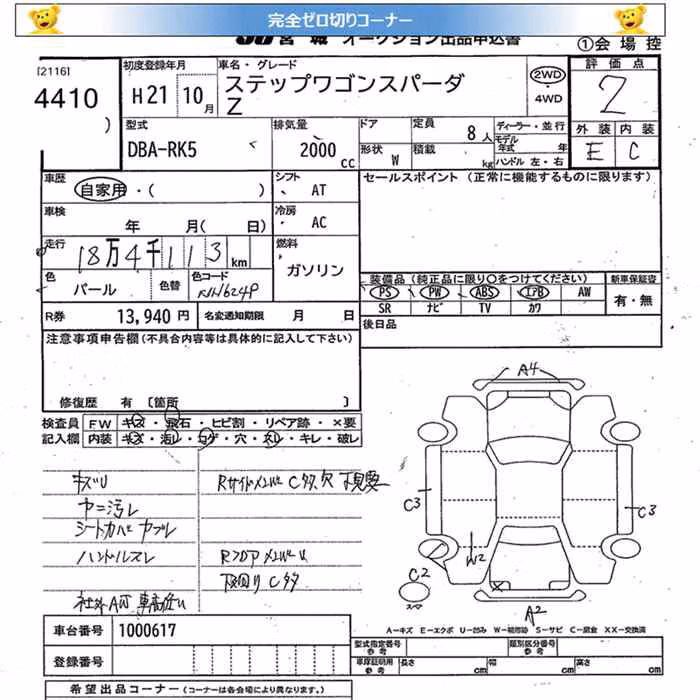 完全ゼロ切りコーナー
JU 宮城 オークション出品申込書
①会場控
[2116]
4410
)
初度登録年月
H21 10月
車名・グレード
ステップワゴンスパーダ
Z
2WD
・
4WD
評価点
2
外装 内装
E C
型式
DBA-RK5
排気量
2000 cc
ドア
形状 W
定員 8人
積載 kg
ディーラー・並行
モデル年式 年
ハンドル 左・右
車歴
自家用・( )
シフト
AT
車検
年 月( 日)
冷房
AC
走行
18万4千113km
燃料
ガソリン
色
パール
色替
色コード
NH624P
R券 13,940円
名変通知期限 月 日
セールスポイント (正常に機能するものに限ります)
装備品 (純正品に限り○をつけてください)
PS PW ABS エアB AW
SR ナビ TV カワ
新車保証書
有・無
後日品
注意事項申告欄 (不具合内容等は具体的に記入して下さい)
修復歴 有 [箇所 ]
検査員 FW キズ・飛石・ヒビ割・リペア跡・×要
記入欄 内装 キズ・汚レ・コゲ・穴・スレ・キレ・破レ
キズU
ヤニ汚レ
シートカバーヤブレ
ハンドルスレ
社外AW 車高低い
RサイドメンバーC多 穴 下見要
RフロアメンバーU
下回りC多
A4
C3
C3
W2
C2
スペア
A2
A-キズ E-エクボ U-凹み W-補修跡 S-サビ C-腐食 XX-交換済
車台番号 1000617
登録番号
型式指定番号 参考
類別区分番号 参考
車庫証明用 参考 長さ cm 幅 cm 高さ cm
希望出品コーナー (コーナーは各会場により異なります。)